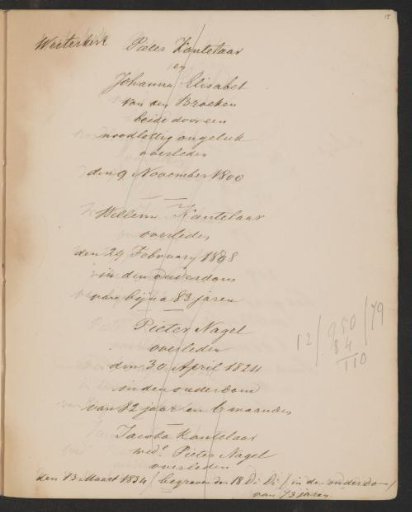 15
Westerkerk Pieter Kantelaar
en
Johanna Elisabet
van den Broeken
beide door een
noodlottig ongeluk
overleden
den 9 November 1800
Willem Kantelaar
overleden
den 29 February 1808
in den ouderdom
van bijna 83 jaren
Pieter Nagel
overleden
den 30 April 1824
in den ouderdom
van 82 jaar en 6 maanden
12/950/79
84
110
Jacoba Kantelaar
wed.e Pieter Nagel
overleden
den 13 Maart 1834 / begraven den 18 Di Di / in de ouderdom /
van 73 jaren